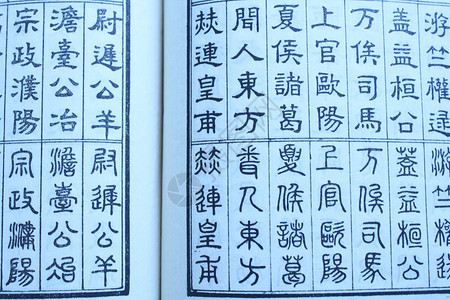 游竺權逯 游竺權逯
盖益桓公 蓋益桓公
万俟司馬 万俟司馬
上官歐陽 上官歐陽
夏侯諸葛 夏侯諸葛
聞人東方 聞人東方
赫連皇甫 赫連皇甫
尉遲公羊 尉遲公羊
澹臺公冶 澹臺公冶
宗政濮陽 宗政濮陽